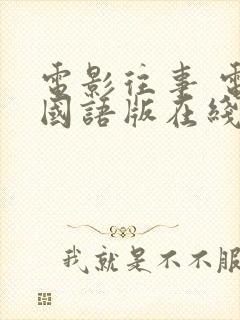 電影往事 電
國語版在綫
我就是不不服